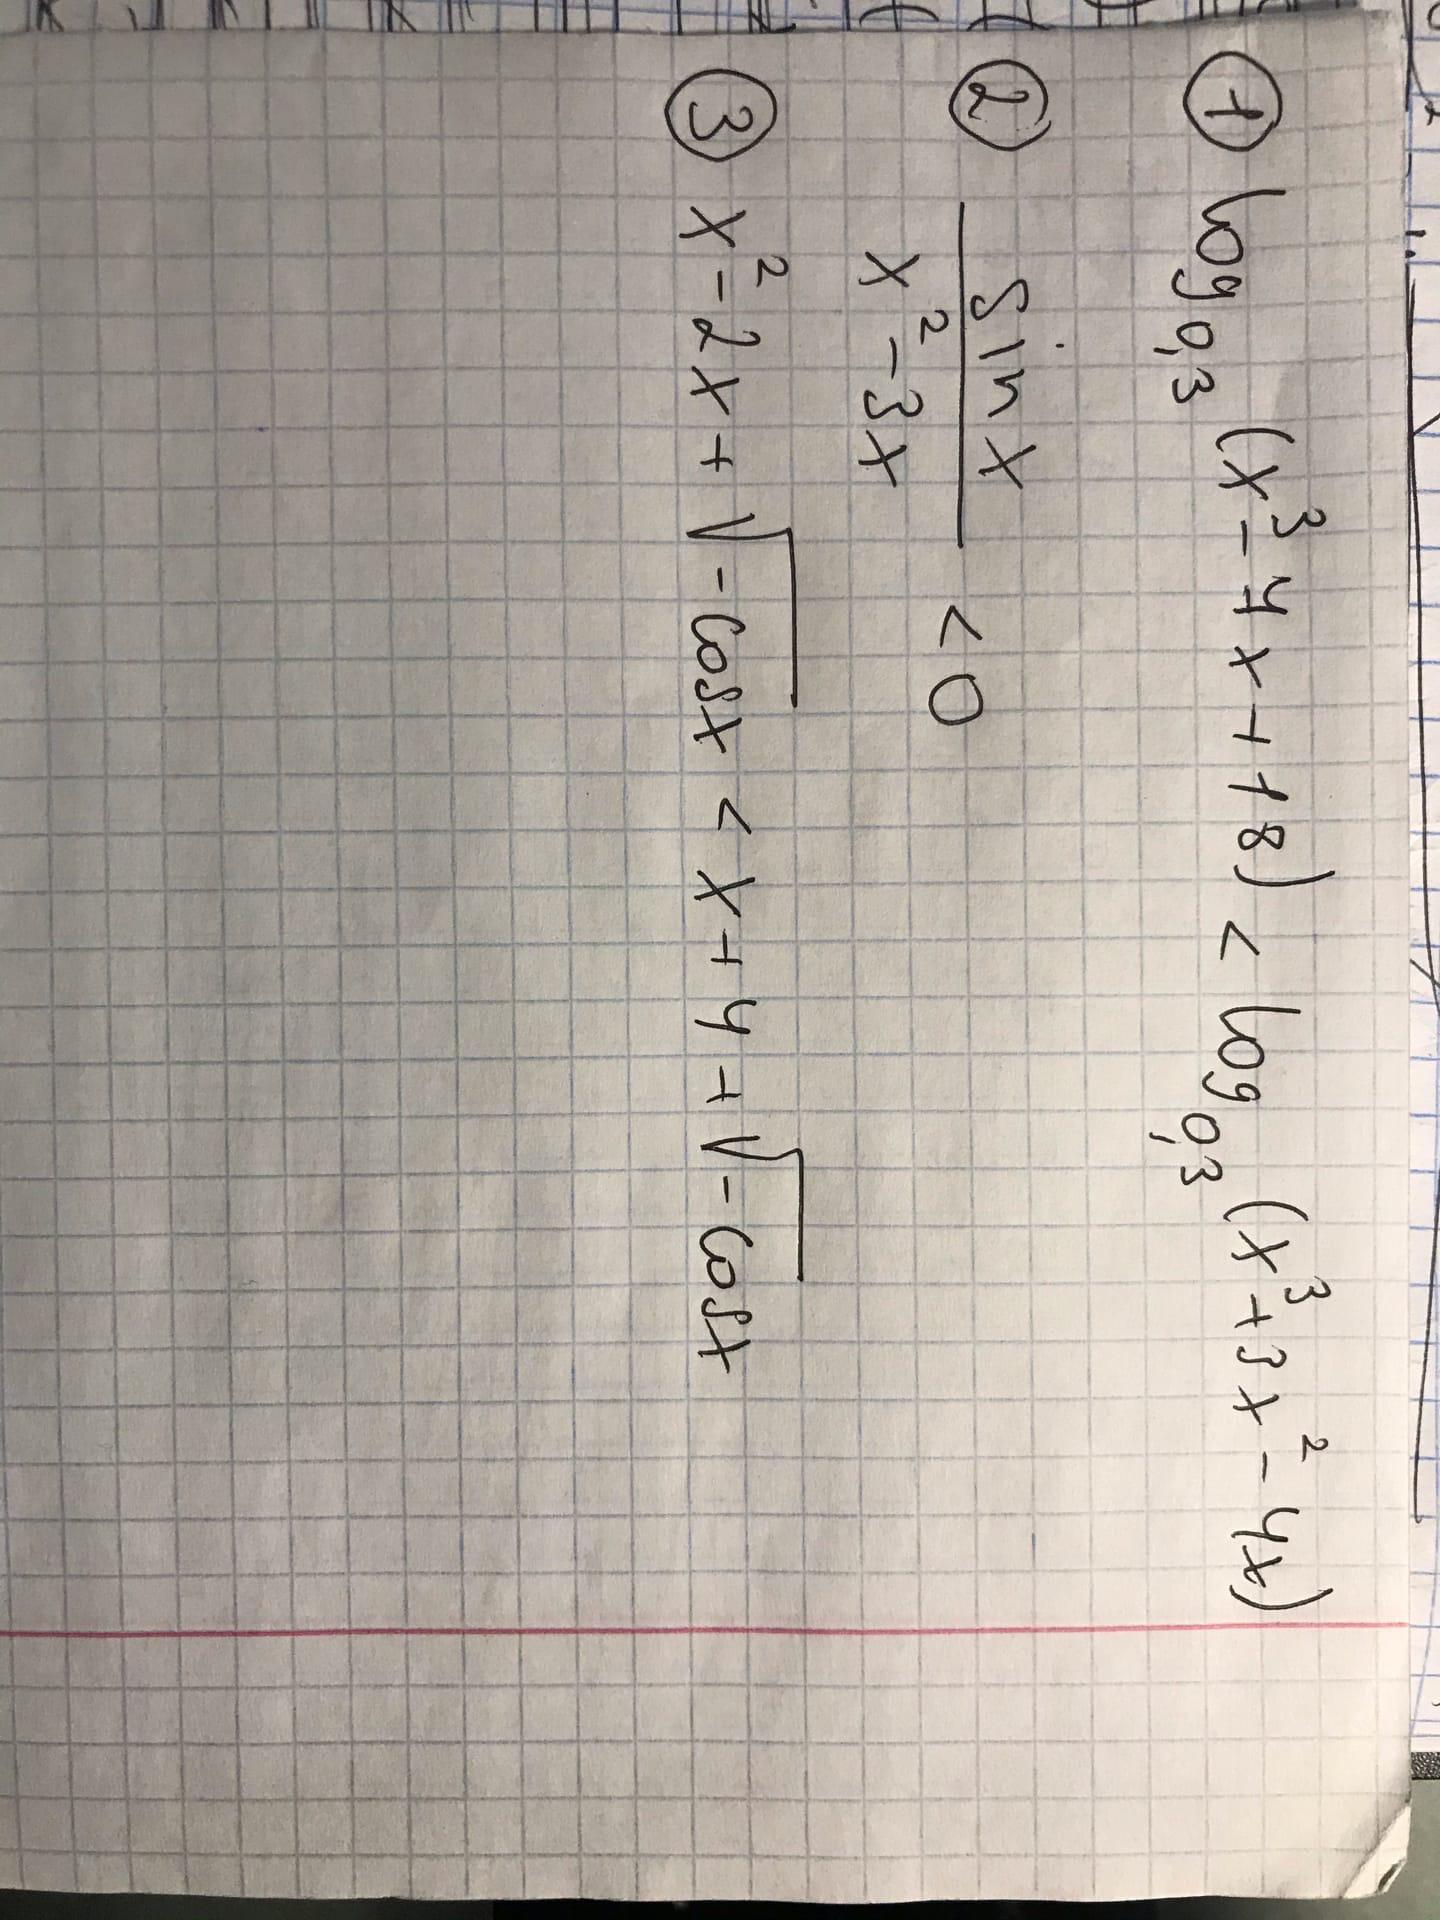 ① log₀,₃ (x³ - 4x + 18) < log₀,₃ (x³ + 3x² - 4x)
② sin x / x² - 3x < 0
③ x² - 2x + √-cosx < x + 4 + √-cosx